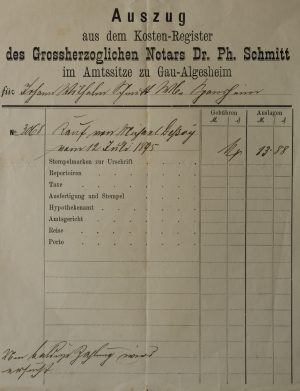 Auszug
aus dem Kosten-Register
des Grossherzoglichen Notars Dr. Ph. Schmitt
im Amtssitze zu Gau-Algesheim
für Johann Wilhelm Schmitt
Gebühren Auslagen
M ₰ M ₰
№ Kauf von Michael
vom 12 Juli 1895 13 88
Stempelmarken zur Urschrift
Repertoiren
Taxe
Ausfertigung und Stempel
Hypothekenamt
Amtsgericht
Reise
Porto
Um baldige Zahlung wird
ersucht